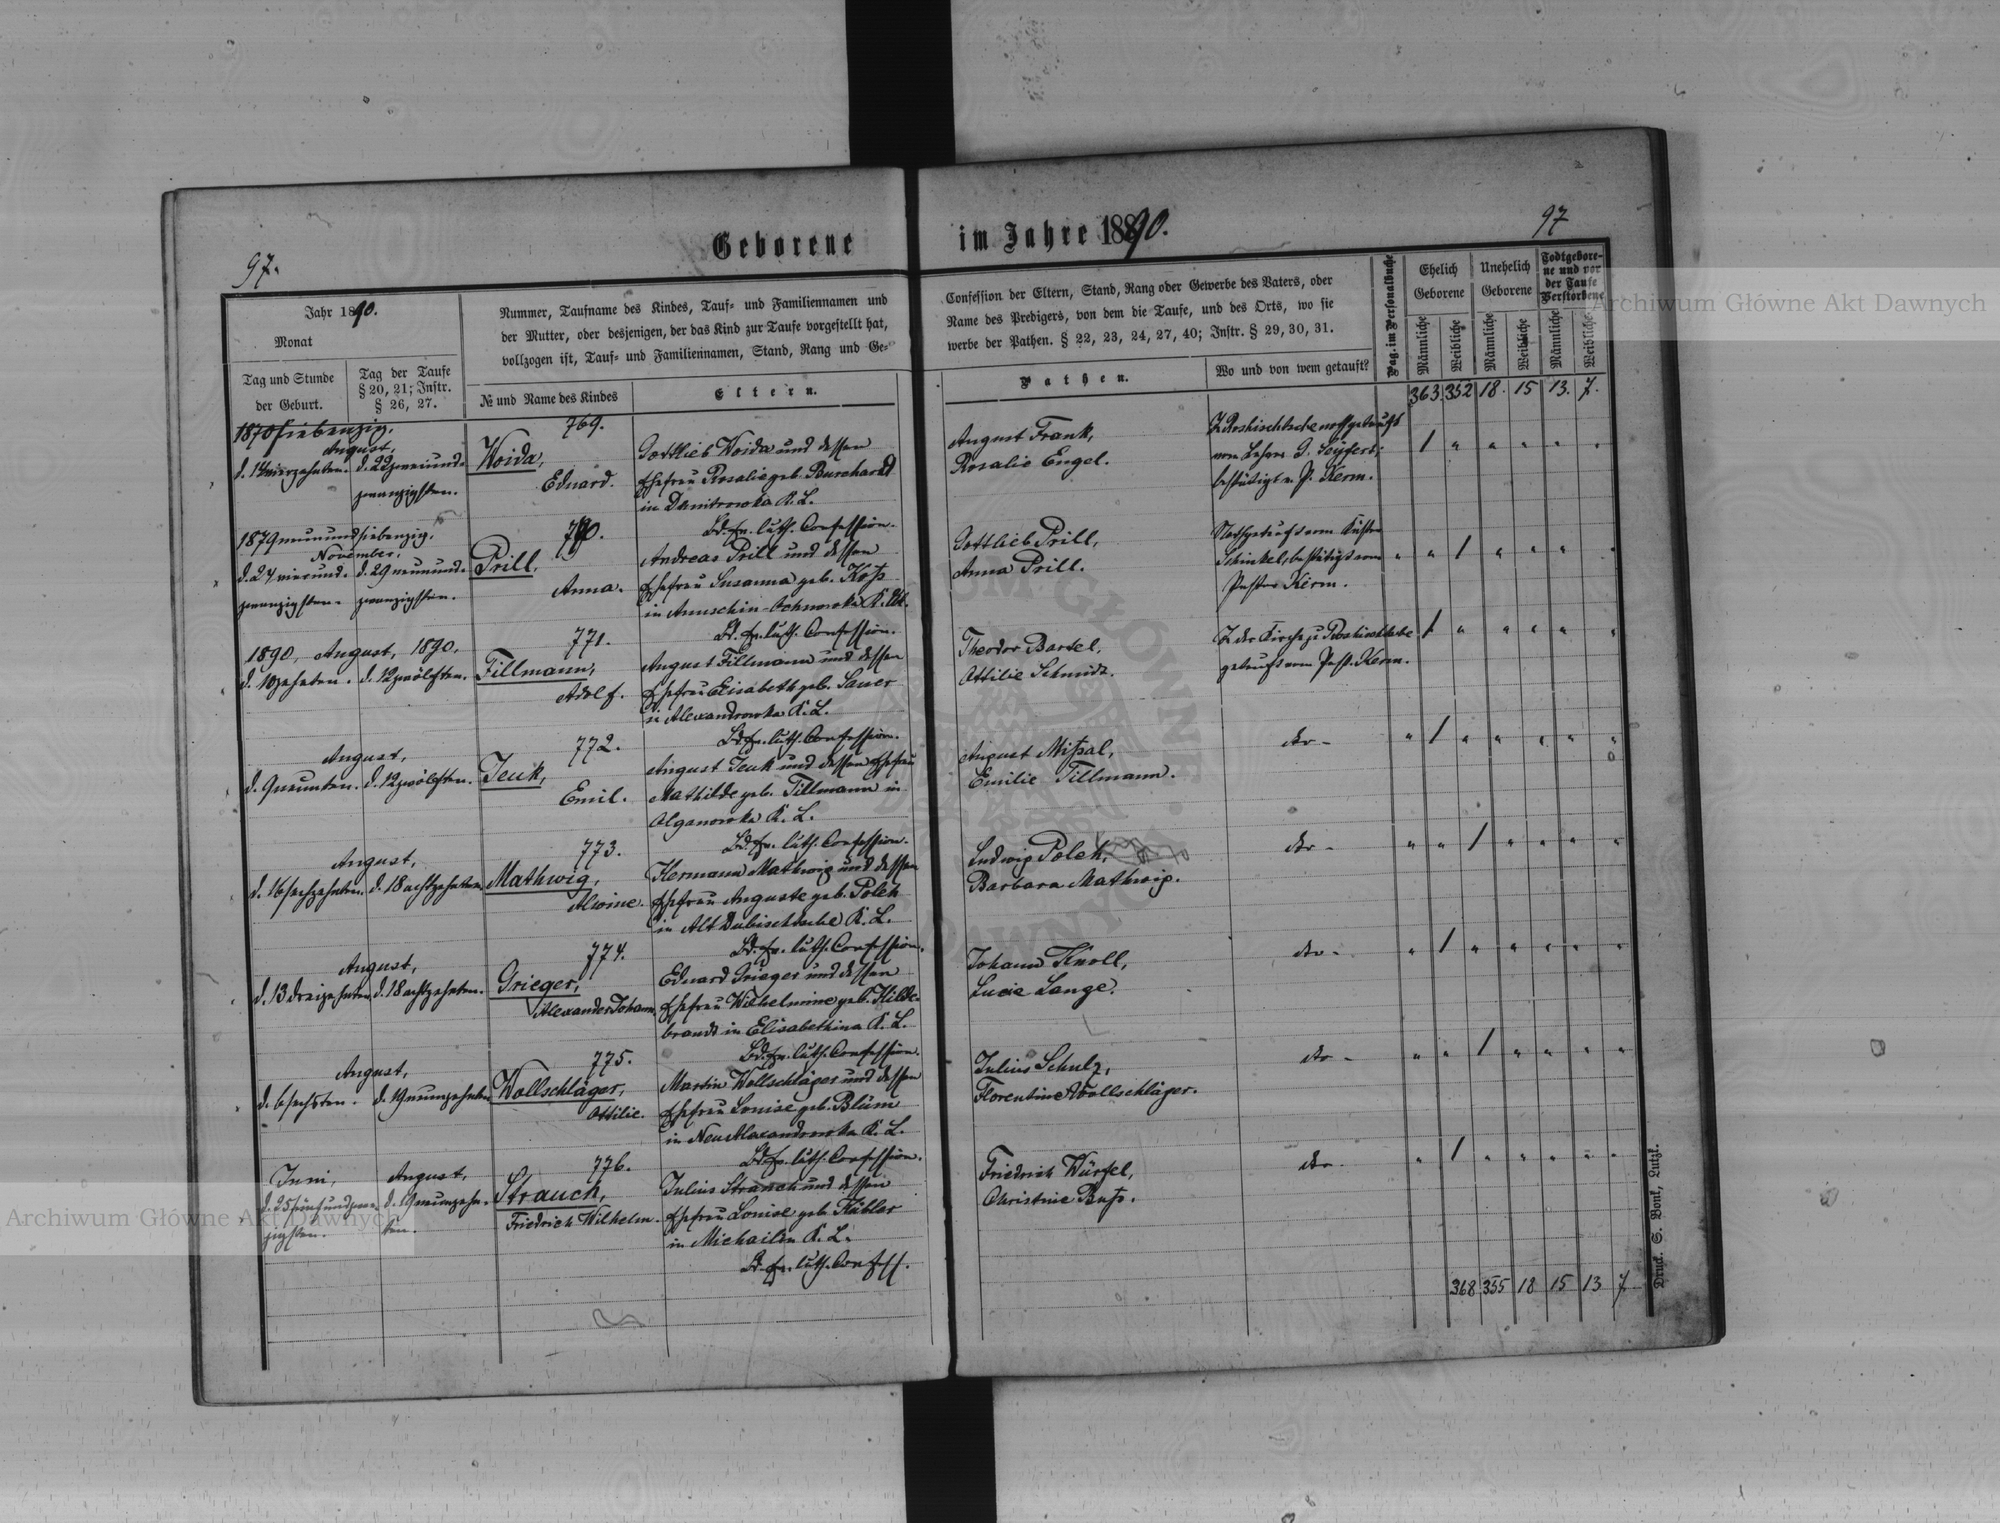 97.
Geborene
im Jahre 1890.
97
Jahr 1890.
Monat
Tag und Stunde
der Geburt.
Tag der Taufe
§ 20, 21; Instr.
§ 26, 27.
Nummer, Taufname des Kindes, Tauf- und Familiennamen und
der Mutter, oder desjenigen, der das Kind zur Taufe vorgestellt hat,
vollzogen ist, Tauf- und Familiennamen, Stand, Rang und Ge-
№ und Name des Kindes
Eltern.
Confession der Eltern, Stand, Rang oder Gewerbe des Vaters, oder
Name des Predigers, von dem die Taufe, und des Orts, wo sie
werbe der Pathen. § 22, 23, 24, 27, 40; Instr. § 29, 30, 31.
Pathen.
Wo und von wem getauft?
Pag. im Personalbuche
Ehelich
Geborene
Unehelich
Geborene
Todtgebore-
ne und vor
der Taufe
Verstorbene
Männliche
Weibliche
Männliche
Weibliche
Männliche
Weibliche
363. 352 18. 15 13. 7.
1870 siebenzig.
August,
d. 14 vierzehnten. d. 22 zweiund-
zwanzigsten.
769.
Woida,
Eduard.
Gottlieb Woida und dessen
Ehefrau Rosalie geb. Burchardt
in Damitrowka K. L.
Bd. ev. luth. Confession.
August Frank,
Rosalie Engel.
Z. Roshischtsche nothgetauft
von Lehrer G. Seyfert;
bestätigt v. P. Kerm.
1879 neunundsiebenzig.
November,
d. 24 vierund- d. 29 neunund-
zwanzigsten. zwanzigsten.
770.
Prill,
Anna.
Andreas Prill und dessen
Ehefrau Susanna geb. Koß
in Annschin-
Bd. ev. luth. Confession.
Gottlieb Prill,
Anna Prill.
Nothgetauft vom Küster
Schinkel, bestätigt vom
Pastor Kerm.
1890, August, 1890,
d. 10 zehnten. d. 12 zwölften.
771.
Tillmann,
Adolf.
August Tillmann und dessen
Ehefrau Elisabeth geb. Sauer
in Alexandrowka K. L.
Bd. ev. luth. Confession.
Theodor Bartel,
Ottilie Schmidt.
Z. der Kirche z. Roshischtsche
getauft vom Past. Kerm.
August,
d. 9 neunten. d. 12 zwölften.
772.
Jeuk,
Emil.
August Jeuk und dessen Ehefrau
Mathilde geb. Tillmann in
Olganowka K. L.
Bd. ev. luth. Confession.
August Mißal,
Emilie Tillmann.
dto -
August,
d. 16 sechzehnten. d. 18 achtzehnten.
773.
Mathwig,
Alwine.
Hermann Mathwig und dessen
Ehefrau Auguste geb. Polek
in Alt Dubischtsche K. L.
Bd. ev. luth. Confession.
Ludwig Polek,
Barbara Mathwig.
dto -
August,
d. 13 dreizehnten. d. 18 achtzehnten.
774.
Grieger,
Alexander Johann.
Eduard Grieger und dessen
Ehefrau Wilhelmine geb. Hilde-
brandt in Elisabethina K. L.
Bd. ev. luth. Confession.
Johann Knoll,
Lucie Lange.
dto -
August,
d. 6 sechsten. d. 19 neunzehnten
775.
Wollschläger,
Ottilie.
Martin Wollschläger und dessen
Ehefrau Louise geb. Blüm
in Neu Alexandrowka K. L.
Bd. ev. luth. Confession.
Julius Schulz,
Florentine Wollschläger.
dto -
Juni, August,
d. 25 fünfundzwan- d. 19 neunzehn-
zigsten. ten.
776.
Strauch,
Friedrich Wilhelm.
Julius Strauch und dessen
Ehefrau Louise geb. Kübler
in Michailin K. L.
Bd. ev. luth. Confess.
Friedrich Würfel,
Christine Buß.
dto -
368 355 18 15 13 7
Druck. S. Bonk, Lutzk.
Archiwum Główne Akt Dawnych
Archiwum Główne Akt Dawnych